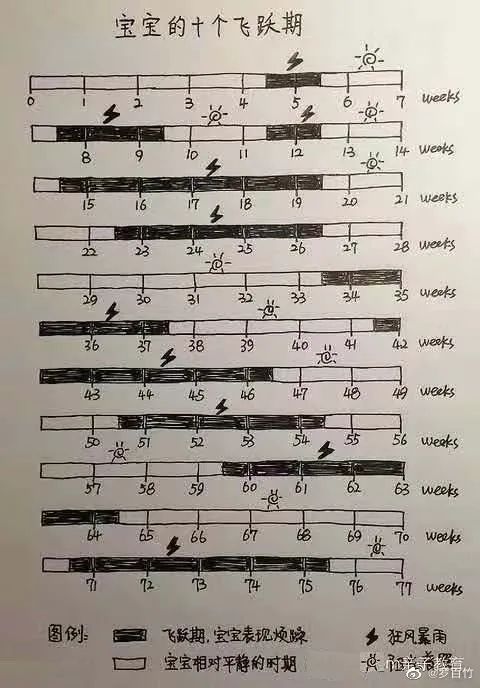 宝宝的十个飞跃期
0 1 2 3 4 5 6 7 weeks
8 9 10 11 12 13 14 weeks
15 16 17 18 19 20 21 weeks
22 23 24 25 26 27 28 weeks
29 30 31 32 33 34 35 weeks
36 37 38 39 40 41 42 weeks
43 44 45 46 47 48 49 weeks
50 51 52 53 54 55 56 weeks
57 58 59 60 61 62 63 weeks
64 65 66 67 68 69 70 weeks
71 72 73 74 75 76 77 weeks
图例: 飞跃期,宝宝表现烦躁 狂风暴雨
宝宝相对平静的时期
亲子教育